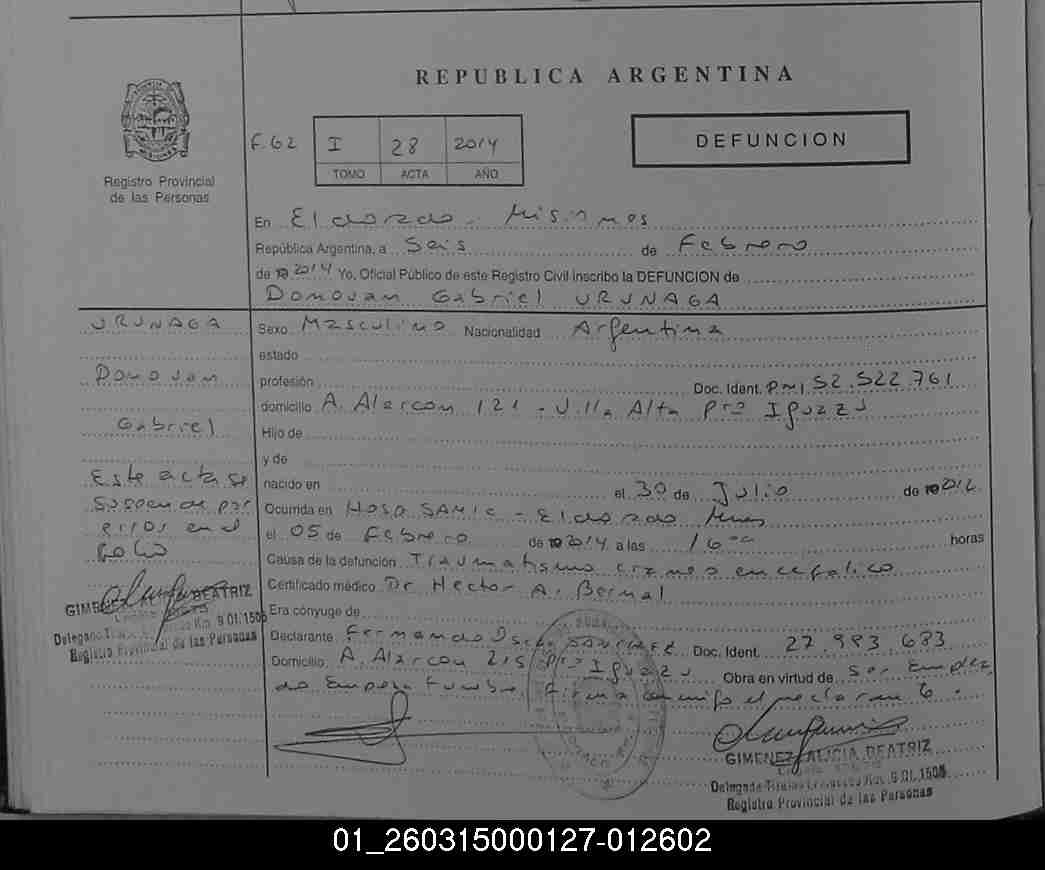 REPUBLICA ARGENTINA
Registro Provincial
de las Personas
F. 62 I 28 2014
TOMO ACTA AÑO
DEFUNCION
En Eldorado - Misiones
República Argentina, a Seis de Febrero
de 2014 Yo, Oficial Público de este Registro Civil inscribo la DEFUNCION de
Donovan Gabriel URUNAGA
URUNAGA
Donovan
Gabriel
Este acta se
Suspende por
error en el
Folio
GIMENEZ ALICIA BEATRIZ
Registro Provincial de las Personas
Sexo Masculino Nacionalidad Argentina
estado
profesión Doc. Ident. DNI 52.522.761
domicilio A. Alarcon 121 - Villa Alta Pto Iguazu
Hijo de
y de
nacido en el 30 de Julio de 2012
Ocurrida en Hosp SAMIC - Eldorado Mnes
el 05 de Febrero de 2014 a las 16 horas
Causa de la defunción Traumatismo craneo encefalico
Certificado médico Dr Hector A. Bernal
Era cónyuge de
Declarante Fernando Doc. Ident. 27.983.683
Domicilio A. Alarcon 215 Pto Iguazu Obra en virtud de Ser Emplea
do Empresa Funebre. Firma conmigo el declarante.
GIMENEZ ALICIA BEATRIZ
Delegada Titular
Registro Provincial de las Personas
01_260315000127-012602